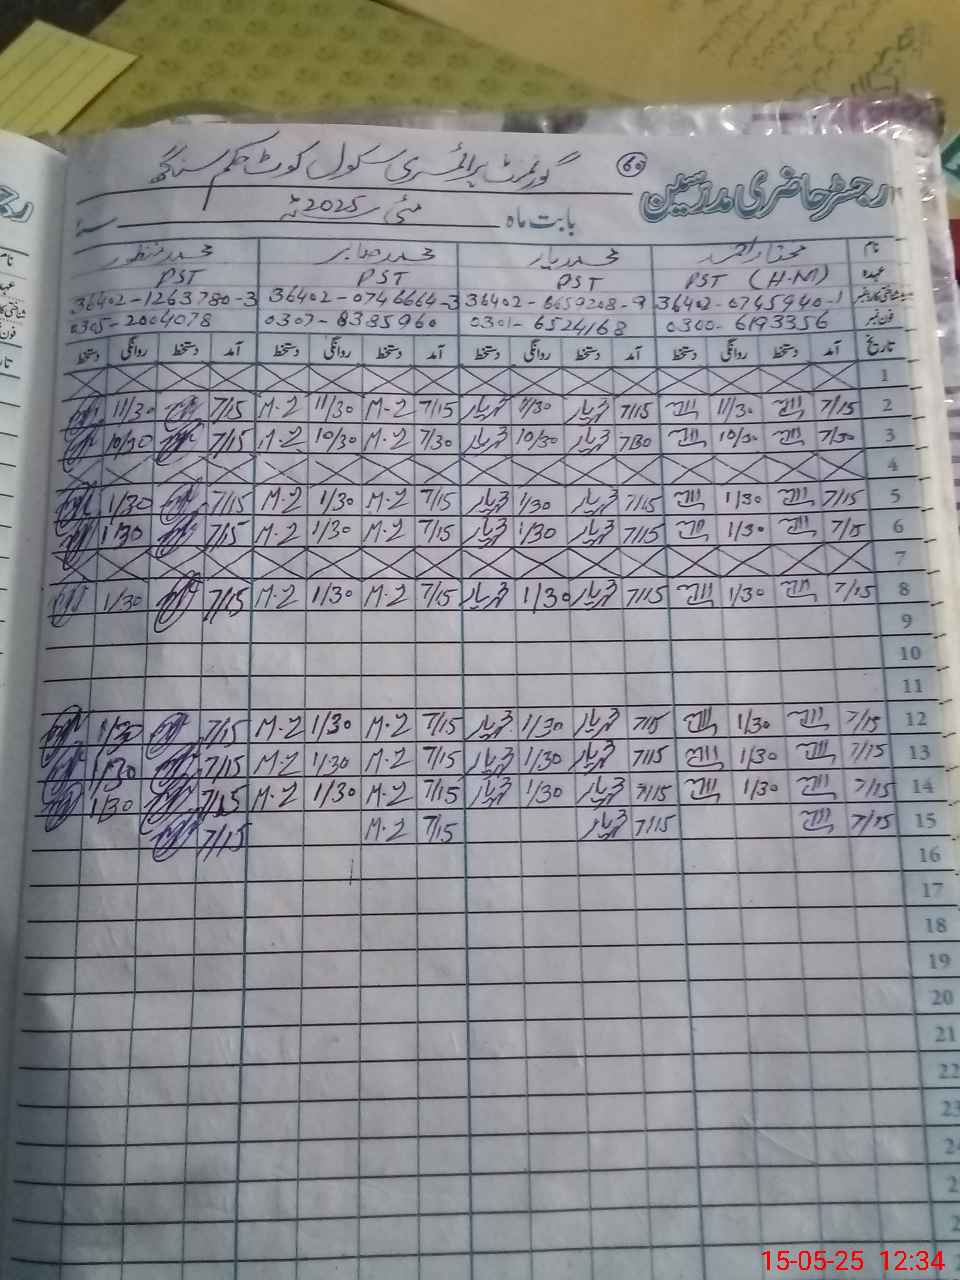 رجسٹر حاضری مدرسین
60
گورنمنٹ پرائمری سکول کوٹ حکم سنگھ
بابت ماہ مئی 2025
نام مختار احمد محمد یار محمد صابر محمد منظور
عہدہ PST (H-M) PST PST PST
شناختی کارڈ نمبر 36402-0745940-1 36402-6659208-9 36402-0746664-3 36402-1263780-3
فون نمبر 0300-6193356 0301-6524168 0307-8385960 0305-2004078
تاریخ آمد دستخط روانگی دستخط آمد دستخط روانگی دستخط آمد دستخط روانگی دستخط آمد دستخط روانگی دستخط
1
2 7/15 11/30 7/15 م یار 11/30 م یار 7/15 M-2 11/30 M-2 7/15 11/30
3 7/30 10/30 7/30 م یار 10/30 م یار 7/30 M-2 10/30 M-2 7/15 10/30
4
5 7/15 1/30 7/15 م یار 1/30 م یار 7/15 M-2 1/30 M-2 7/15 1/30
6 7/15 1/30 7/15 م یار 1/30 م یار 7/15 M-2 1/30 M-2 7/15 1/30
7
8 7/15 1/30 7/15 م یار 1/30 م یار 7/15 M-2 1/30 M-2 7/15 1/30
9
10
11
12 7/15 1/30 7/15 م یار 1/30 م یار 7/15 M-2 1/30 M-2 7/15 1/30
13 7/15 1/30 7/15 م یار 1/30 م یار 7/15 M-2 1/30 M-2 7/15 1/30
14 7/15 1/30 7/15 م یار 1/30 م یار 7/15 M-2 1/30 M-2 7/15 1/30
15 7/15 7/15 م یار 7/15 M-2 7/15
16
17
18
19
20
21
22
23
15-05-25 12:34